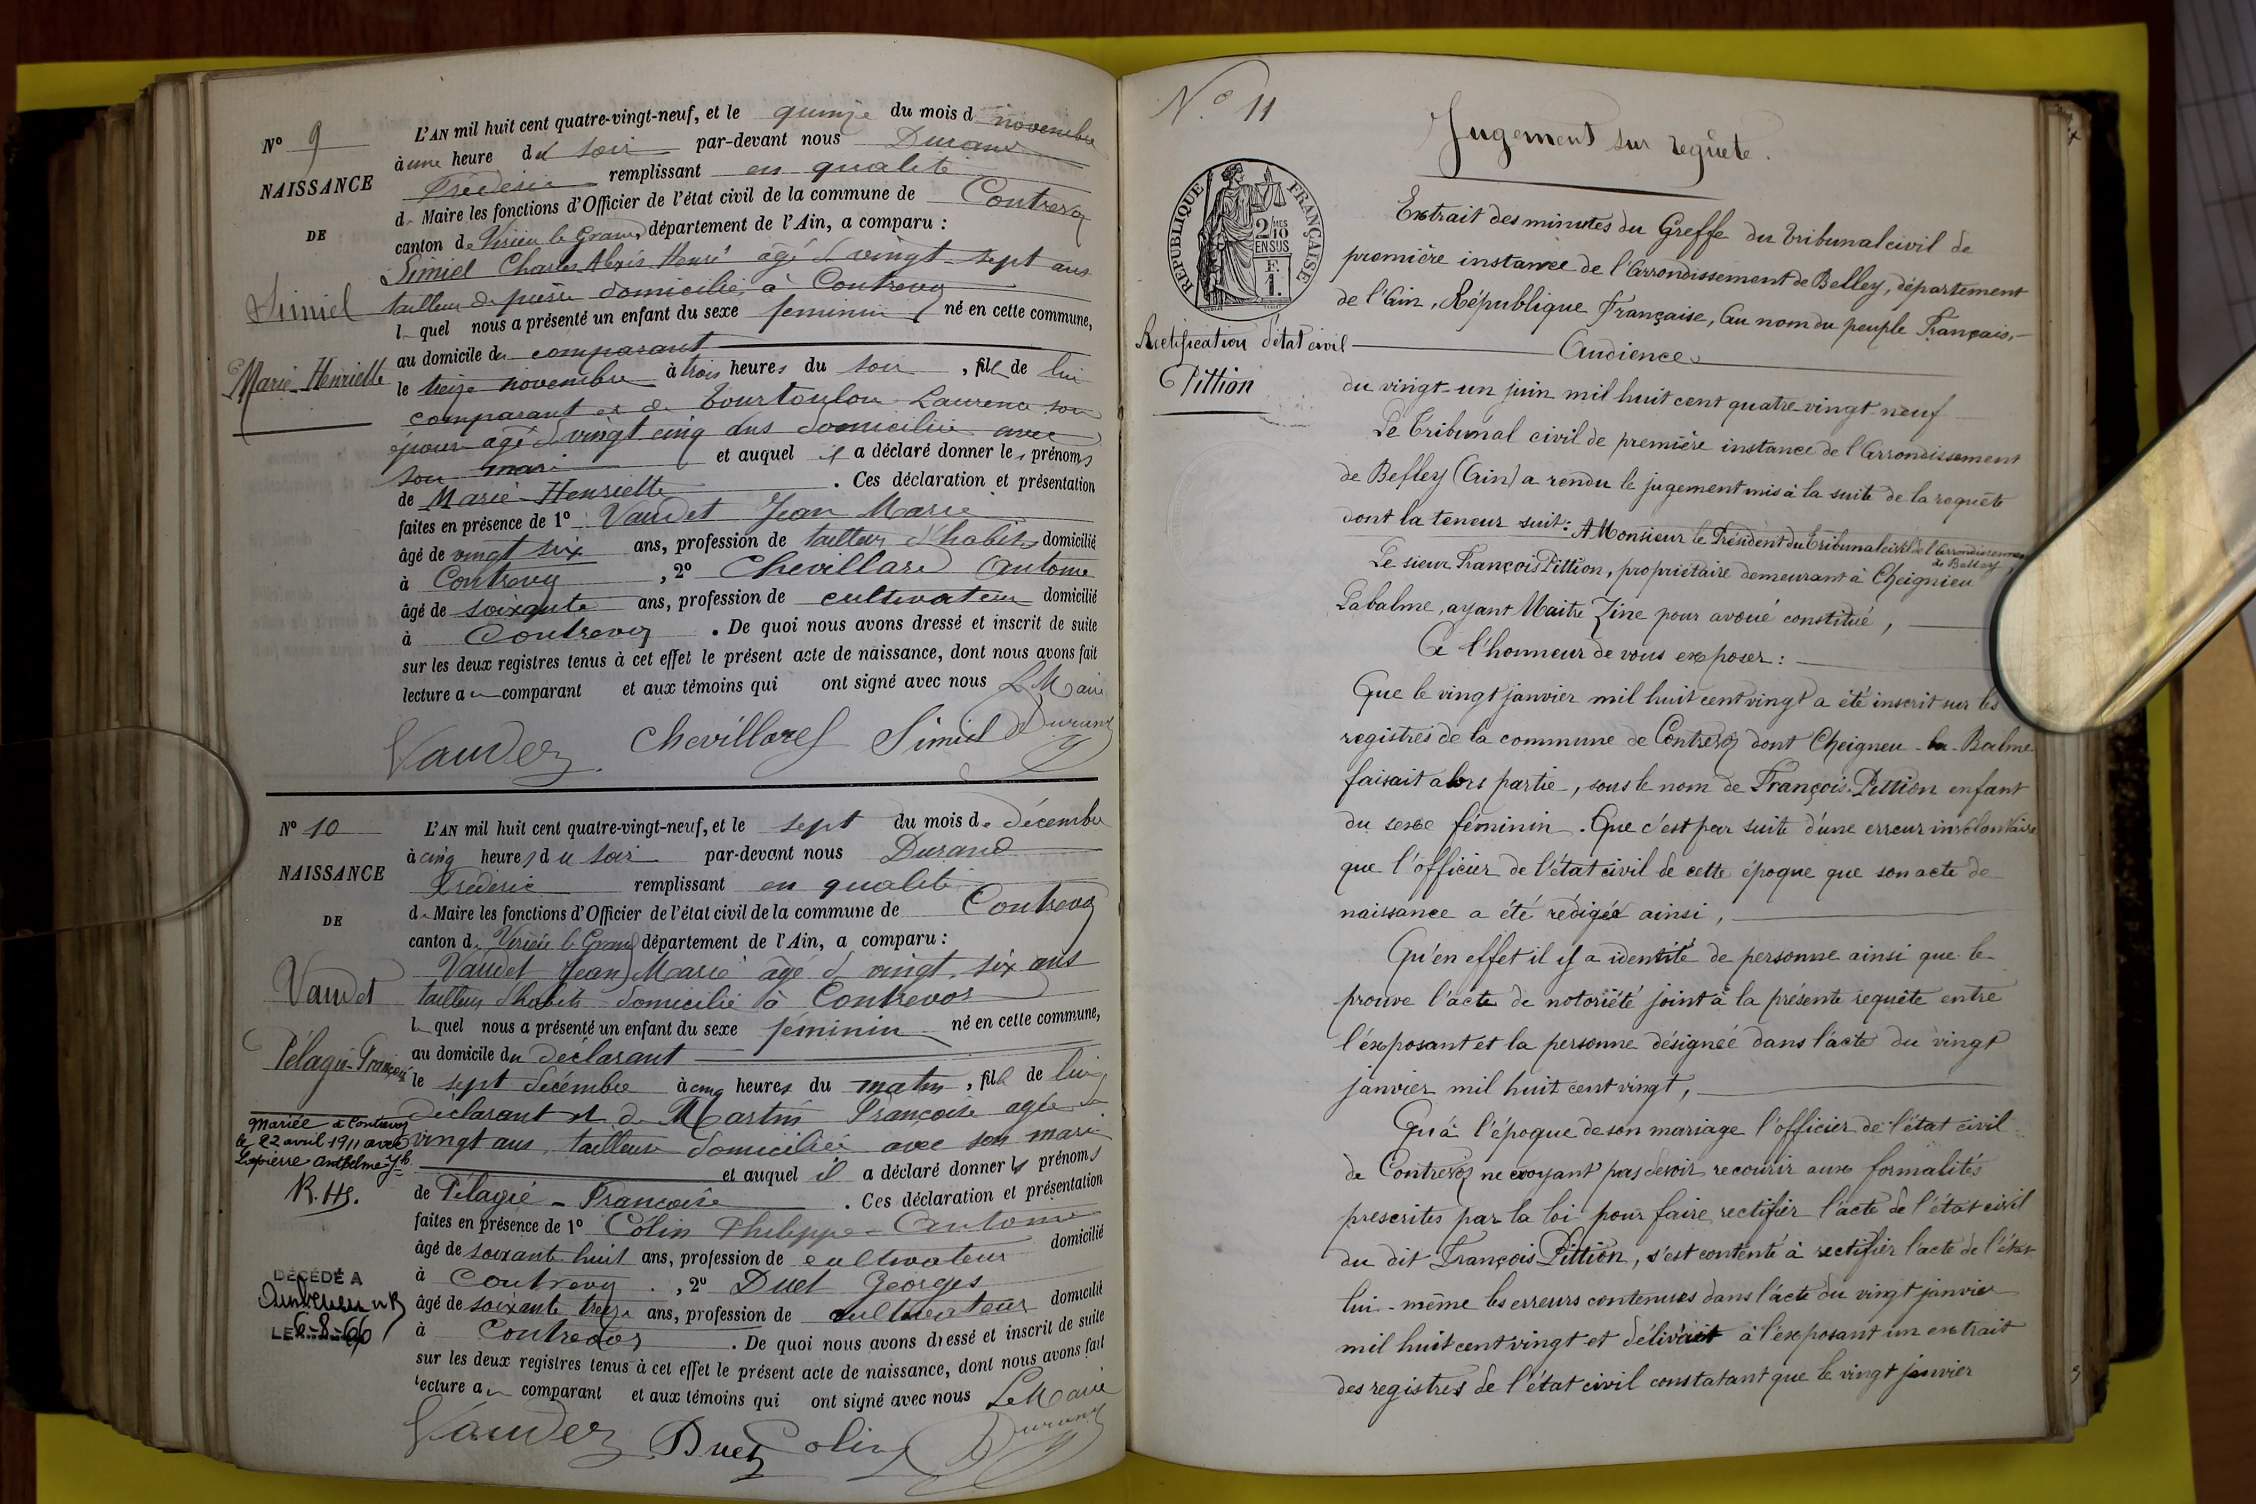 N° 9
NAISSANCE
DE
Simiel
Marie-Henriette
L'AN mil huit cent quatre-vingt-neuf, et le quinze du mois d novembre
à une heure du soir par-devant nous Durand
Fréderic remplissant en qualité
de Maire les fonctions d'Officier de l'état civil de la commune de Contrevoz
canton de Virieu le Grand, département de l'Ain, a comparu :
Simiel Charles Alexis Henri âgé de vingt-sept ans
tailleur de pierre domicilié à Contrevoz
l quel nous a présenté un enfant du sexe féminin né en cette commune,
au domicile du comparant
le treize novembre à trois heures du soir, fille de lui
comparant et de Tourtoulou Laurence son
épouse âgé de vingt cinq ans domiciliée avec
son mari et auquel il a déclaré donner les prénoms
de Marie-Henriette. Ces déclaration et présentation
faites en présence de 1° Vaudet Jean Marie
âgé de vingt six ans, profession de tailleur d'habits domicilié
à Contrevoz, 2° Chevillard Antoine
âgé de soixante ans, profession de cultivateur domicilié
à Contrevoz. De quoi nous avons dressé et inscrit de suite
sur les deux registres tenus à cet effet le présent acte de naissance, dont nous avons fait
lecture au comparant et aux témoins qui ont signé avec nous Le Maire
Vaudez Chevillard Simiel Durand
N° 10
NAISSANCE
DE
Vaudet
Pélagie-Françoise
Mariée à Contrevoz
le 22 avril 1911 avec
Lapierre Anthelme Jh
R.H.
DÉCÉDÉ A
LE 6-8-66
L'AN mil huit cent quatre-vingt-neuf, et le sept du mois de décembre
à cinq heures du soir par-devant nous Durand
Fréderic remplissant en qualité
de Maire les fonctions d'Officier de l'état civil de la commune de Contrevoz
canton de Virieu le Grand département de l'Ain, a comparu :
Vaudet Jean Marie âgé de vingt-six ans
tailleur d'habits domicilié à Contrevoz
l quel nous a présenté un enfant du sexe féminin né en cette commune,
au domicile du déclarant
le sept décembre à cinq heures du matin, fille de lui
déclarant et de Martin Françoise agée de
vingt ans, tailleuse domiciliée avec son mari
et auquel il a déclaré donner les prénoms
de Pélagie-Françoise. Ces déclaration et présentation
faites en présence de 1° Colin Philippe-Antoine
âgé de soixante huit ans, profession de cultivateur domicilié
à Contrevoz, 2° Duet Georges
âgé de soixante treize ans, profession de cultivateur domicilié
à Contrevoz. De quoi nous avons dressé et inscrit de suite
sur les deux registres tenus à cet effet le présent acte de naissance, dont nous avons fait
lecture au comparant et aux témoins qui ont signé avec nous Le Maire
Vaudez Duet Colin Durand
N° 11
Jugement sur requête.
RÉPUBLIQUE FRANÇAISE
2/10 MES
EN SUS
F.
1.
Rectification d'état civil
Pittion
Extrait des minutes du Greffe du tribunal civil de
première instance de l'Arrondissement de Belley, département
de l'Ain, République Française, Au nom du peuple Français,
Audience
du vingt-un juin mil huit cent quatre-vingt neuf
Le Tribunal civil de première instance de l'Arrondissement
de Belley (Ain) a rendu le jugement mis à la suite de la requête
dont la teneur suit: A Monsieur le Président du Tribunal civil de l'Arrondissement de Belley,
Le sieur François Pittion, propriétaire demeurant à Cheignieu
Labalme, ayant Maitre Zine pour avoué constitué,
A l'honneur de vous exposer:
Que le vingt janvier mil huit cent vingt a été inscrit sur les
registres de la commune de Contrevoz dont Cheigneu-la-Balme
faisait alors partie, sous le nom de François Pittion enfant
du sexe féminin. Que c'est par suite d'une erreur involontaire
que l'officier de l'état civil de cette époque que son acte de
naissance a été rédigée ainsi,
Qu'en effet il y a identité de personne ainsi que le
prouve l'acte de notoriété joint à la présente requête entre
l'exposant et la personne désignée dans l'acte du vingt
janvier mil huit cent vingt,
Qu'à l'époque de son mariage l'officier de l'état civil
de Contrevoz ne croyant pas devoir recourir aux formalités
prescrites par la loi pour faire rectifier l'acte de l'état civil
du dit François Pittion, s'est contenté à rectifier l'acte de l'état
lui-même les erreurs contenues dans l'acte du vingt janvier
mil huit cent vingt et délivrait à l'exposant un extrait
des registres de l'état civil constatant que le vingt janvier